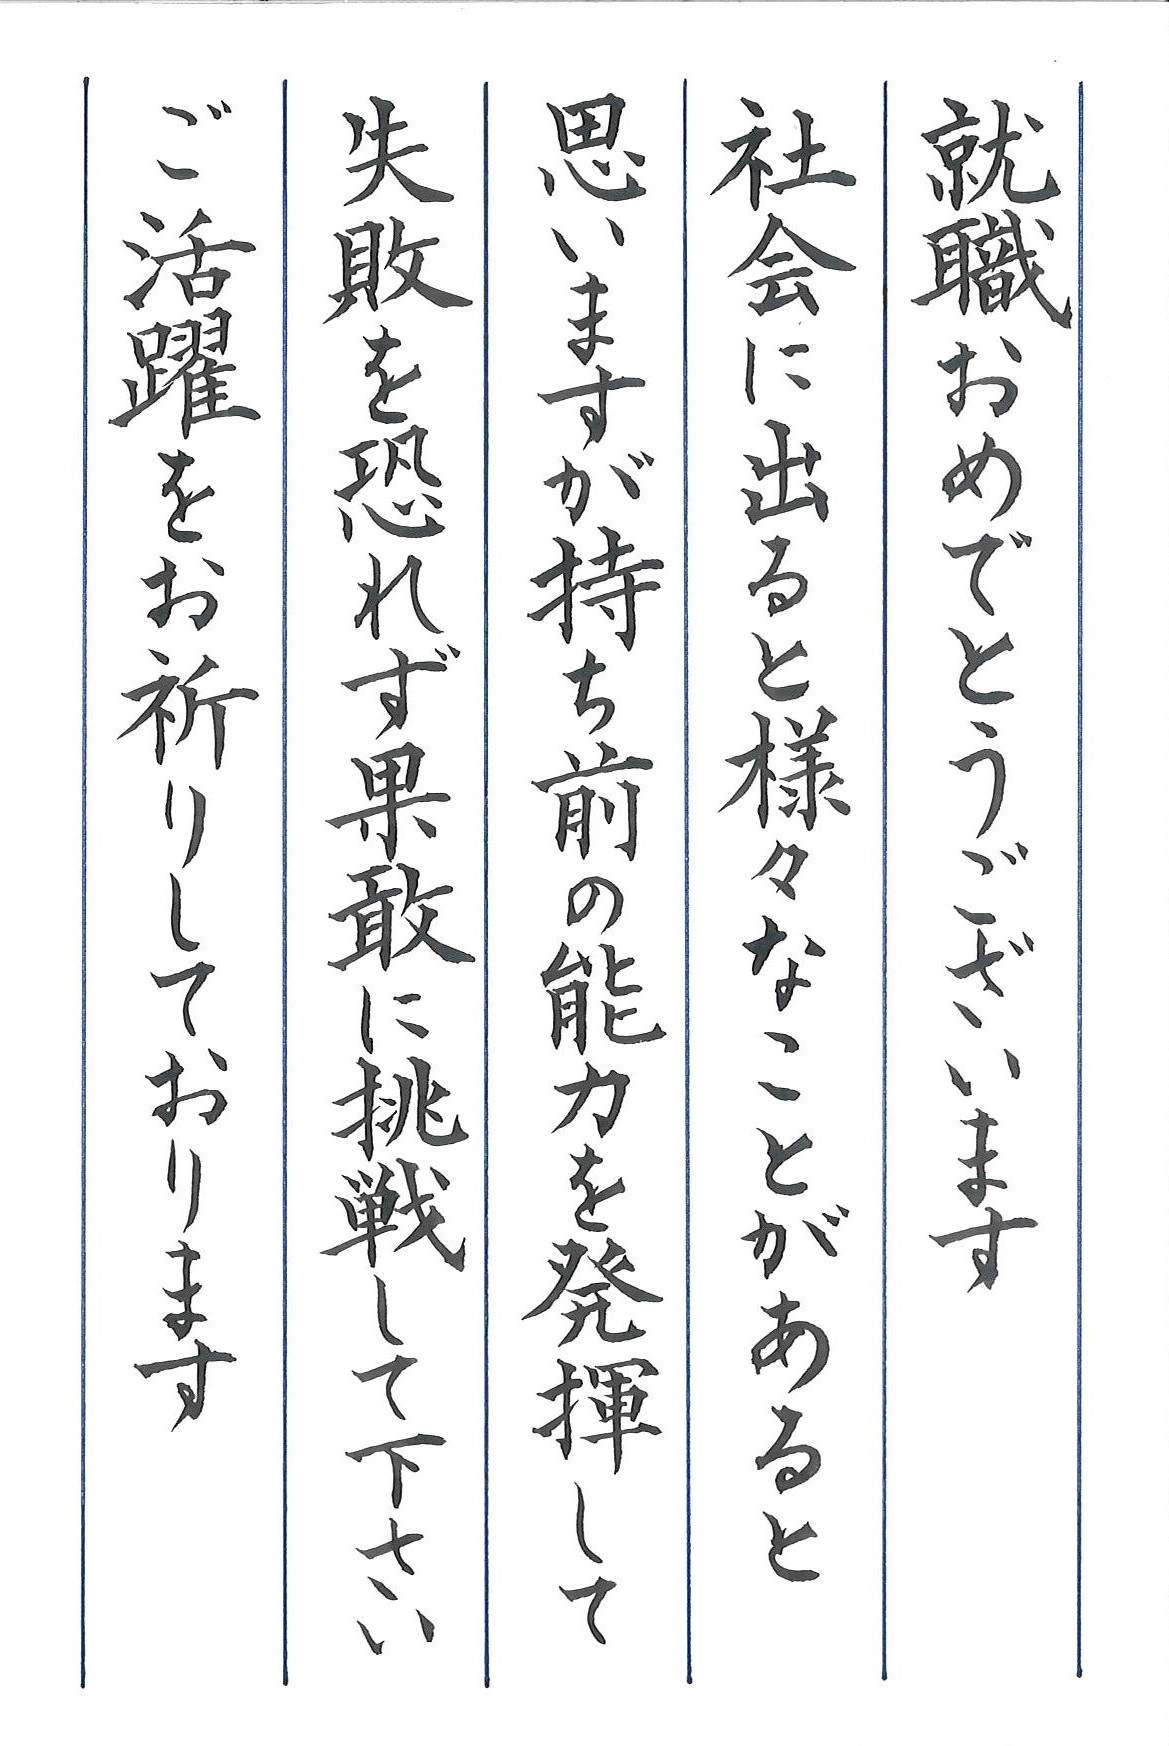 就職おめでとうございます
社会に出ると様々なことがあると
思いますが持ち前の能力を発揮して
失敗を恐れず果敢に挑戦して下さい
ご活躍をお祈りしております